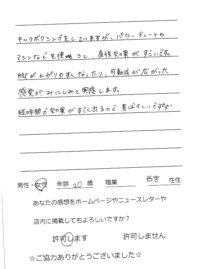 キックボクシングをしていますが、パワープレートや
マシンなどを使用すると、直後効果がすごいです。
脚が上がりやすくなったり、可動域が広がった
感覚がみにしみて実感します。
短時間で効果がすぐ出るので 素ばらしいですね
男性・女性 年齢 20 歳 職業 区営 在住
あなたの感想をホームページやニュースレターや
店内に掲載してもよろしいですか?
許可します 許可しません
☆ご協力ありがとうございました☆